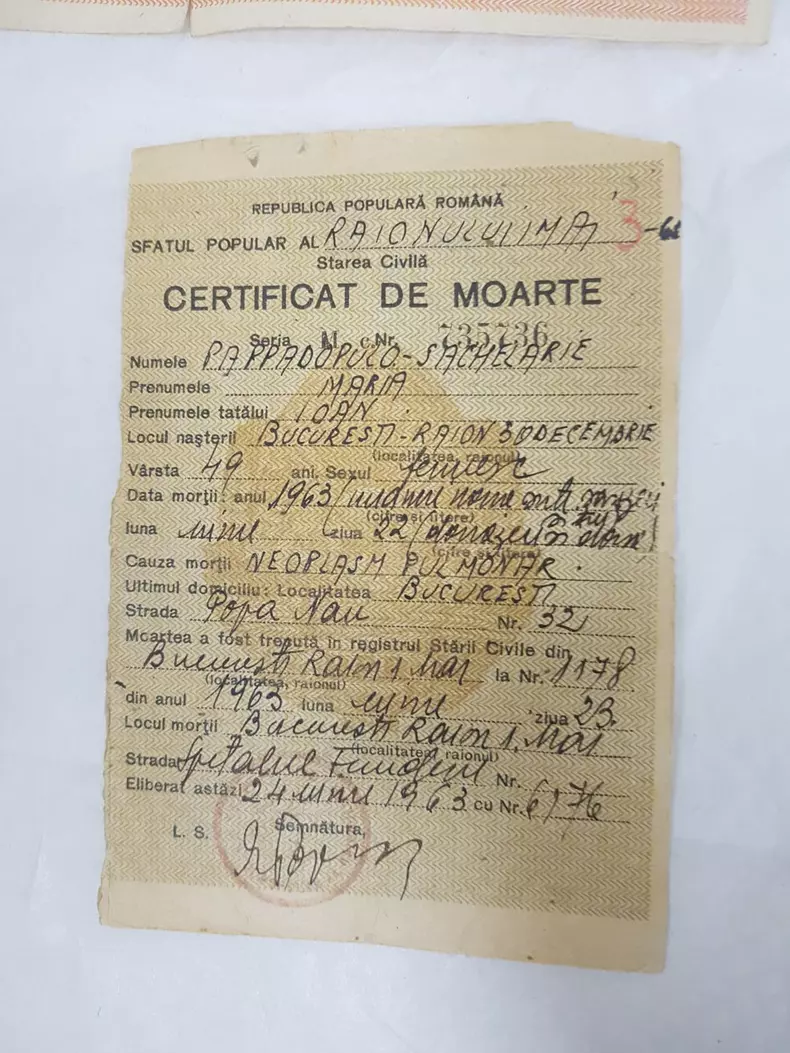 REPUBLICA POPULARĂ ROMÂNĂ
SFATUL POPULAR AL RAIONULUI 1 MAI 3
Starea Civilă
CERTIFICAT DE MOARTE
Seria M.c Nr. 735736
Numele PAPPADOPULO-SACHELARIE
Prenumele MARIA
Prenumele tatălui IOAN
Locul nașterii BUCUREȘTI-RAION 30 DECEMBRIE
(localitatea, raionul)
Vârsta 49 ani. Sexul femeiesc
Data morții: anul 1963 / una mie nouă sute
(cifre și litere)
luna iunie ziua 22 / douăzeci
(cifre și litere)
Cauza morții NEOPLASM PULMONAR.
Ultimul domiciliu: Localitatea BUCUREȘTI
Strada Popa Nan Nr. 32
Moartea a fost trecută în registrul Stării Civile din
București Raion 1 Mai la Nr. 1178
(localitatea, raionul)
din anul 1963 luna iunie ziua 23.
Locul morții București Raion 1. Mai
(localitatea, raionul)
Strada Spitalul Fundeni Nr.
Eliberat astăzi 24 iunie 1963 cu Nr. 6176
Semnătura,
L. S.